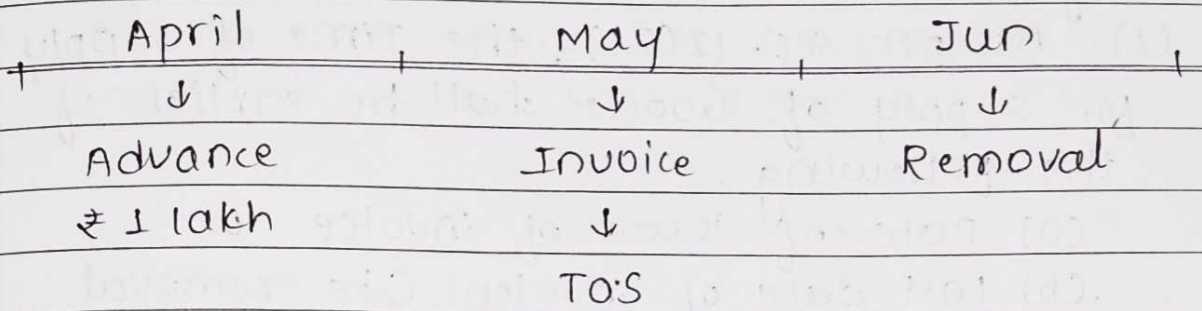 April May Jun
↓ ↓ ↓
Advance Invoice Removal
₹ 1 lakh ↓
T.O.S